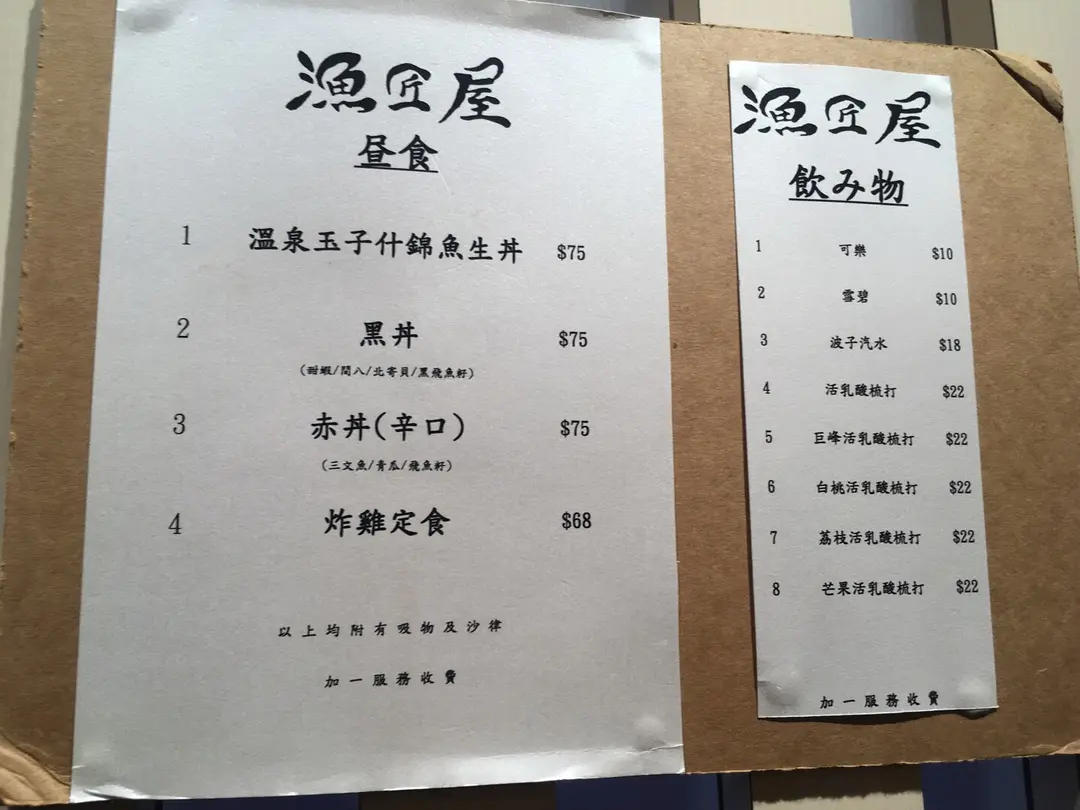 漁匠屋
昼食
1 溫泉玉子什錦魚生丼 $75
2 黑丼 $75
(甜蝦/間八/北寄貝/黑飛魚籽)
3 赤丼(辛口) $75
(三文魚/青瓜/飛魚籽)
4 炸雞定食 $68
以上均附有吸物及沙律
加一服務收費
漁匠屋
飲み物
1 可樂 $10
2 雪碧 $10
3 波子汽水 $18
4 活乳酸梳打 $22
5 巨峰活乳酸梳打 $22
6 白桃活乳酸梳打 $22
7 荔枝活乳酸梳打 $22
8 芒果活乳酸梳打 $22
加一服務收費